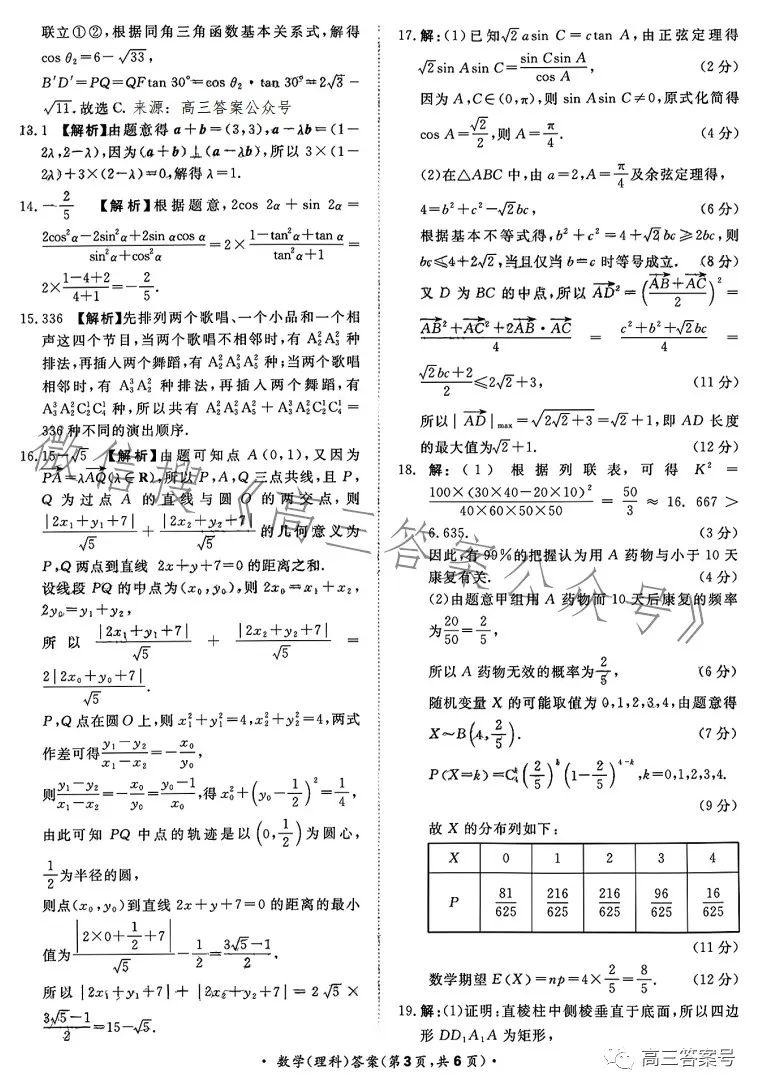 联立①②,根据同角三角函数基本关系式,解得
cos θ₂=6-√33,
B′D′=PQ=QFtan 30°=cos θ₂·tan 30°=2√3-
√11.故选C. 来源: 高三答案公众号
13.1 【解析】由题意得 a+b=(3,3),a-λb=(1-
2λ,2-λ),因为(a+b)⊥(a-λb),所以 3×(1-
2λ)+3×(2-λ)=0,解得 λ=1.
14.-2/5 【解析】根据题意,2cos 2α+sin 2α=
(2cos²α-2sin²α+2sin αcos α)/(sin²α+cos²α)=2×(1-tan²α+tan α)/(tan²α+1)=
2×(1-4+2)/(4+1)=-2/5.
15.336 【解析】先排列两个歌唱、一个小品和一个相
声这四个节目,当两个歌唱不相邻时,有 A₂²A₃² 种
排法,再插入两个舞蹈,有 A₂²A₃²A₅² 种;当两个歌唱
相邻时,有 A₃³A₂² 种排法,再插入两个舞蹈,有
A₃³A₂²C₂¹C₄¹ 种,所以共有 A₂²A₃²A₅²+A₃³A₂²C₂¹C₄¹=
336 种不同的演出顺序.
16.15-√5 【解析】由题可知点 A(0,1),又因为
PA=λAQ(λ∈R),所以 P,A,Q 三点共线,且 P,
Q 为过点 A 的直线与圆 O 的两交点,则
|2x₁+y₁+7|/√5+|2x₂+y₂+7|/√5 的几何意义为
P,Q 两点到直线 2x+y+7=0 的距离之和.
设线段 PQ 的中点为(x₀,y₀),则 2x₀=x₁+x₂,
2y₀=y₁+y₂,
所以 |2x₁+y₁+7|/√5 + |2x₂+y₂+7|/√5 =
2|2x₀+y₀+7|/√5.
P,Q 点在圆 O 上,则 x₁²+y₁²=4,x₂²+y₂²=4,两式
作差可得(y₁-y₂)/(x₁-x₂)=-x₀/y₀,
则(y₁-y₂)/(x₁-x₂)=-x₀/y₀=(y₀-1)/x₀,得 x₀²+(y₀-1/2)²=1/4,
由此可知 PQ 中点的轨迹是以(0,1/2)为圆心,
1/2为半径的圆,
则点(x₀,y₀)到直线 2x+y+7=0 的距离的最小
值为|2×0+1/2+7|/√5-1/2=(3√5-1)/2,
所以 |2x₁+y₁+7|+|2x₂+y₂+7|=2√5×
(3√5-1)/2=15-√5.
17.解:(1)已知√2asin C=ctan A,由正弦定理得
√2sin Asin C=sin Csin A/cos A, (2分)
因为 A,C∈(0,π),则 sin Asin C≠0,原式化简得
cos A=√2/2,则 A=π/4. (4分)
(2)在△ABC 中,由 a=2,A=π/4及余弦定理得,
4=b²+c²-√2bc, (6分)
根据基本不等式得,b²+c²=4+√2bc≥2bc,则
bc≤4+2√2,当且仅当 b=c 时等号成立. (8分)
又 D 为 BC 的中点,所以 AD²=((AB+AC)/2)²=
(AB²+AC²+2AB·AC)/4 = (c²+b²+√2bc)/4 =
(√2bc+2)/2≤2√2+3, (11分)
所以|AD|max=√(2√2+3)=√2+1,即 AD 长度
的最大值为√2+1. (12分)
18.解:(1)根据列联表,可得 K²=
100×(30×40-20×10)²/(40×60×50×50)=50/3≈16.667>
6.635. (3分)
因此,有99%的把握认为用 A 药物与小于 10 天
康复有关. (4分)
(2)由题意甲组用 A 药物而 10 天后康复的频率
为20/50=2/5,
所以 A 药物无效的概率为2/5, (6分)
随机变量 X 的可能取值为 0,1,2,3,4,由题意得
X~B(4,2/5). (7分)
P(X=k)=C₄ᵏ(2/5)ᵏ(1-2/5)⁴⁻ᵏ,k=0,1,2,3,4.
(9分)
故 X 的分布列如下:
X 0 1 2 3 4
P 81/625 216/625 216/625 96/625 16/625
(11分)
数学期望 E(X)=np=4×2/5=8/5. (12分)
19.解:(1)证明:直棱柱中侧棱垂直于底面,所以四边
形 DD₁A₁A 为矩形,
·数学(理科)答案(第3页,共6页)·
微信搜《高三答案公众号》
高三答案号